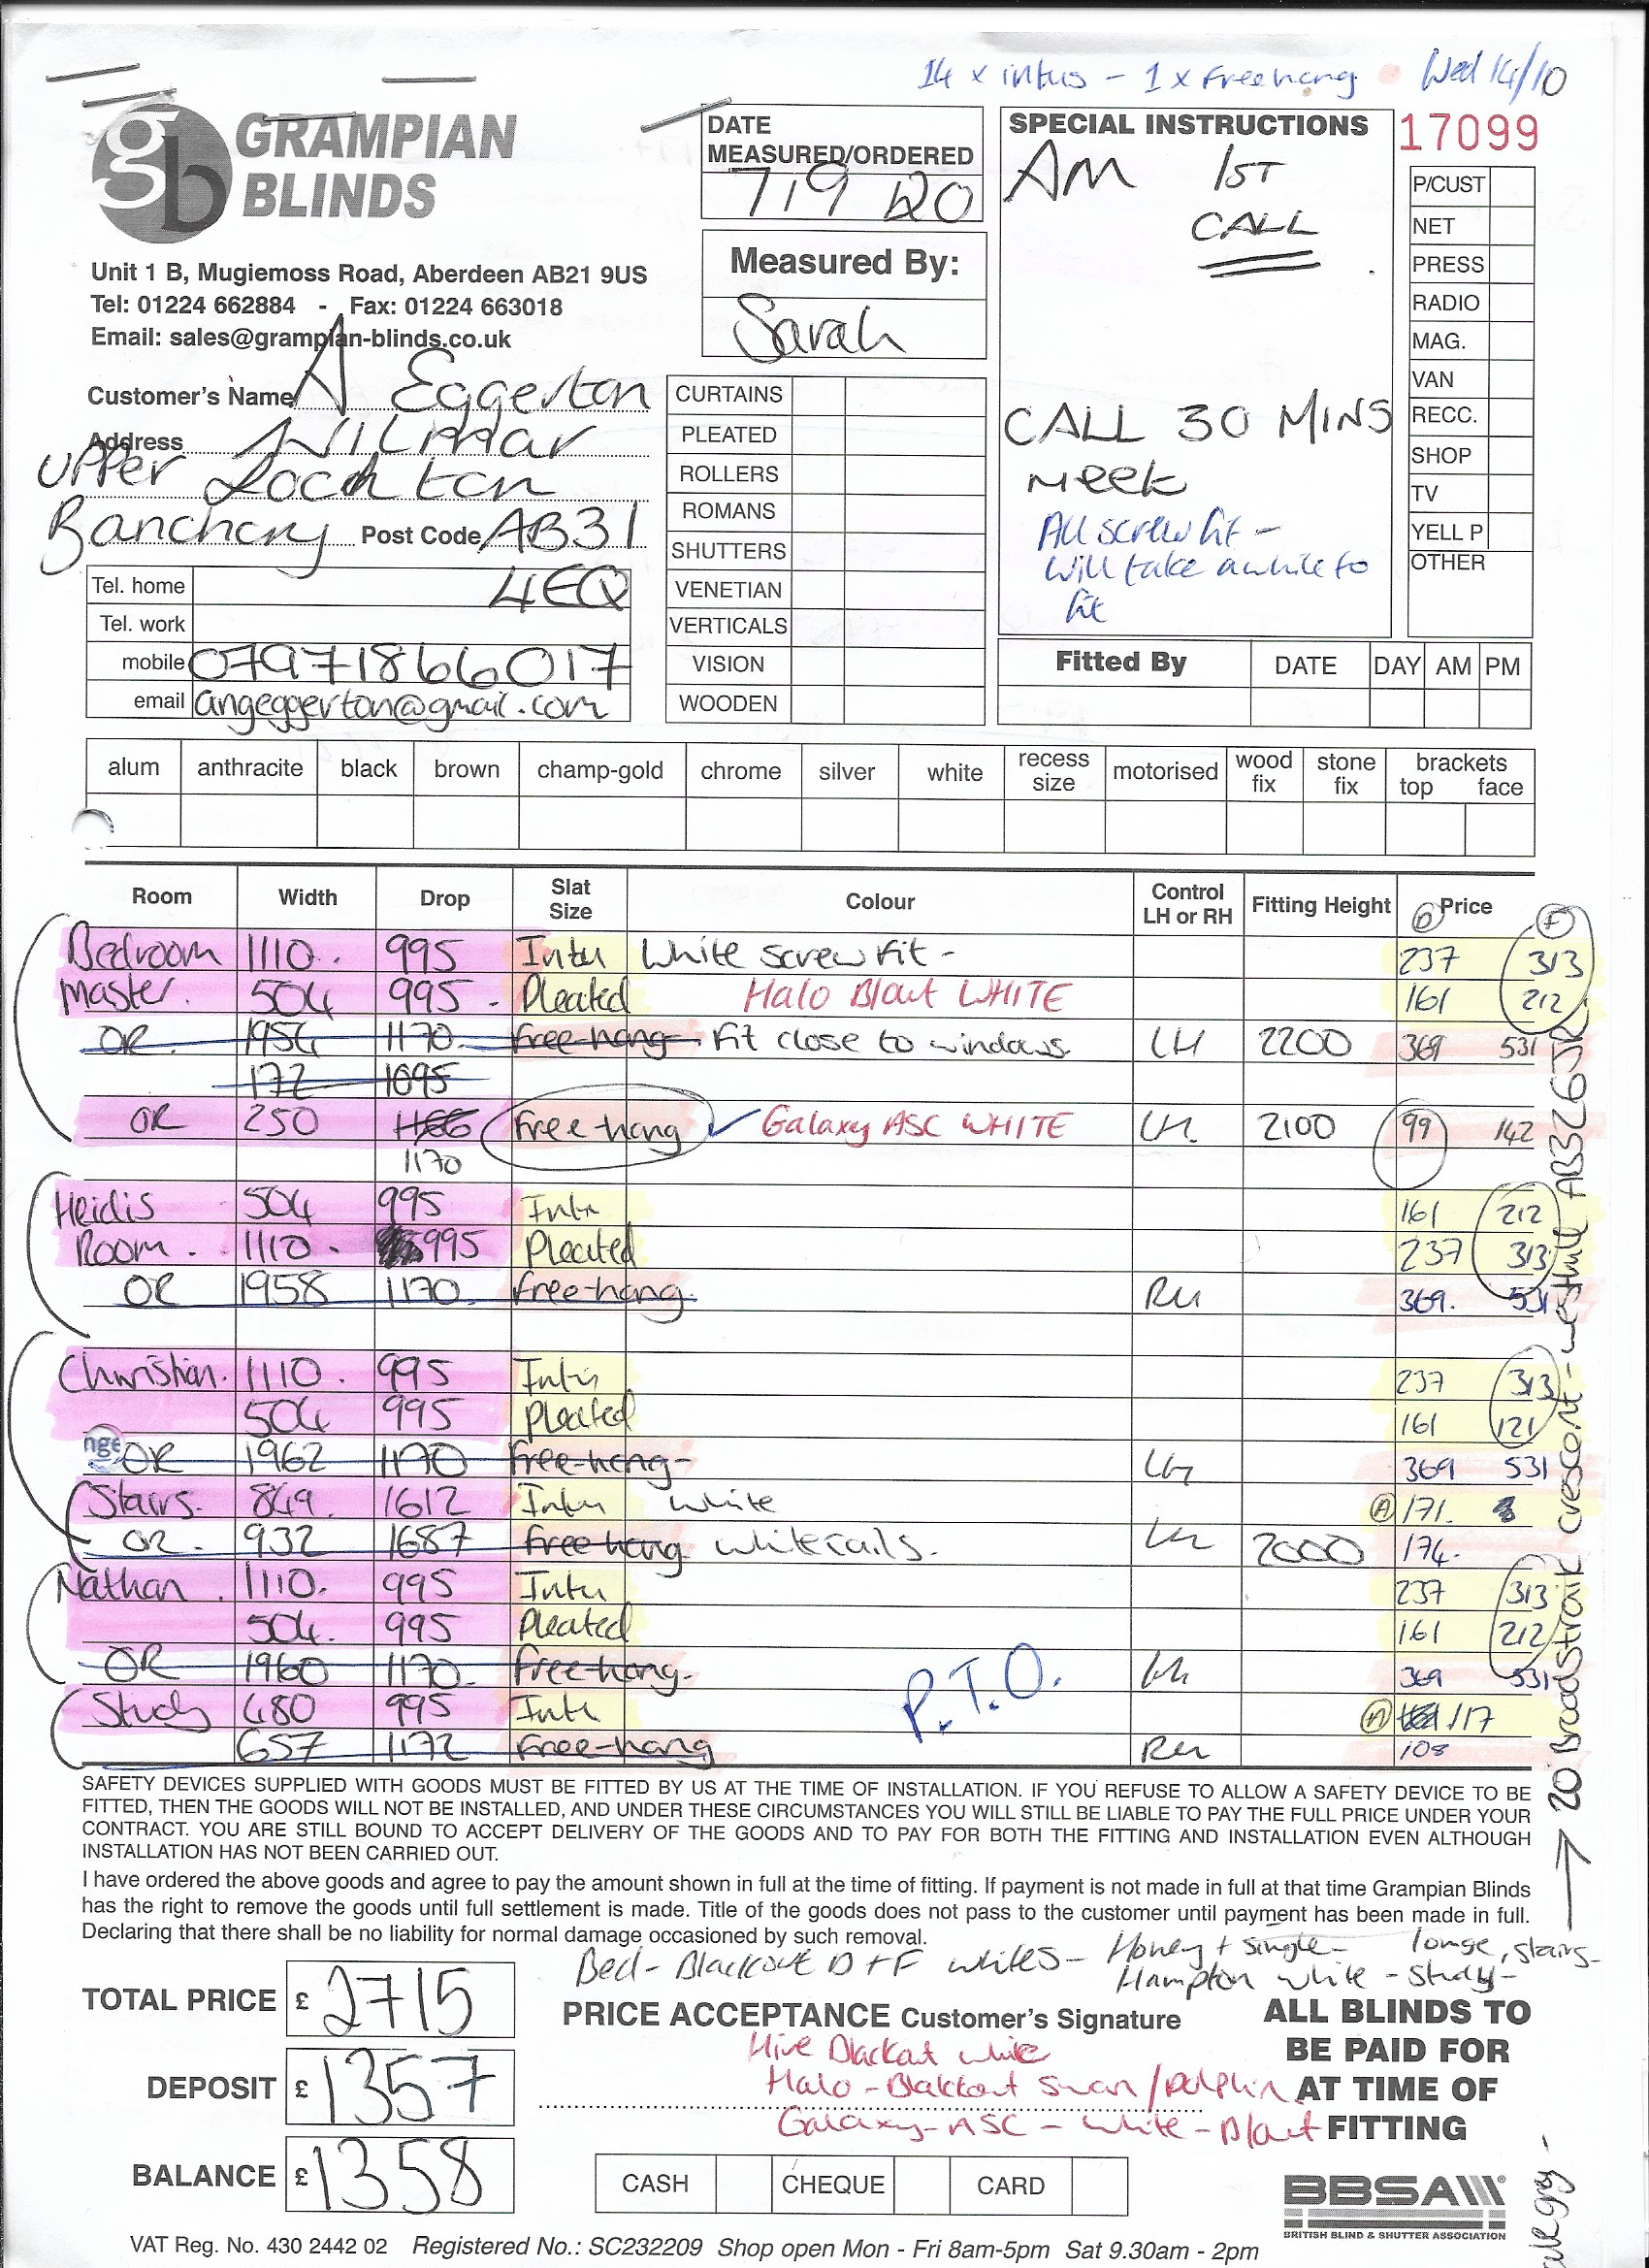 14 x intus - 1 x Freehang Wed 14/10
gb GRAMPIAN
BLINDS
Unit 1 B, Mugiemoss Road, Aberdeen AB21 9US
Tel: 01224 662884 - Fax: 01224 663018
Email: sales@grampian-blinds.co.uk
DATE
MEASURED/ORDERED
7/9 20
Measured By:
Sarah
SPECIAL INSTRUCTIONS
AM 1ST
CALL
CALL 30 MINS
Meek
All screw fit -
will take awhile to
fit
17099
P/CUST
NET
PRESS
RADIO
MAG.
VAN
RECC.
SHOP
TV
YELL P
OTHER
Customer's Name A Eggerton
Address Wilmar
Upper Lochton
Banchory Post Code AB31
4EQ
Tel. home
Tel. work
mobile 07971866017
email angeggerton@gmail.com
CURTAINS
PLEATED
ROLLERS
ROMANS
SHUTTERS
VENETIAN
VERTICALS
VISION
WOODEN
Fitted By DATE DAY AM PM
alum anthracite black brown champ-gold chrome silver white recess size motorised wood fix stone fix brackets top face
Room Width Drop Slat Size Colour Control LH or RH Fitting Height D Price F
Bedroom 1110. 995 Intu White screw fit - 237 313
Master. 504 995 - Pleated Halo Blout WHITE 161 212
OR. 1954 1170 Free-hang- Fit close to windows LH 2200 369 531
172 1095
OR 250 1166 Free hang ✓ Galaxy ASC WHITE LH. 2100 99 142
1170
Heidis 504 995 Intu 161 212
Room. 1110. 995 Pleated 237 313
OR 1958 1170. Free-hang. RH 369. 531
Christian. 1110. 995 Intu 237 313
504 995 Pleated 161 121
nge OR 1962 1170 Free-hang- LH 369 531
Stairs. 849. 1612 Intu white A 171.
OR. 932 1687 Free hang white rails. LH 2000 174.
Nathan. 1110. 995 Intu 237 313
504. 995 Pleated 161 212
OR 1960 1170. Free-hang. LH 369 531
Study 680 995 Intu A 117
657 1172 Free-hang RH 108
P.T.O.
→ 20 Broadstraik Crescent - Westhill AB32 6JR
SAFETY DEVICES SUPPLIED WITH GOODS MUST BE FITTED BY US AT THE TIME OF INSTALLATION. IF YOU REFUSE TO ALLOW A SAFETY DEVICE TO BE
FITTED, THEN THE GOODS WILL NOT BE INSTALLED, AND UNDER THESE CIRCUMSTANCES YOU WILL STILL BE LIABLE TO PAY THE FULL PRICE UNDER YOUR
CONTRACT. YOU ARE STILL BOUND TO ACCEPT DELIVERY OF THE GOODS AND TO PAY FOR BOTH THE FITTING AND INSTALLATION EVEN ALTHOUGH
INSTALLATION HAS NOT BEEN CARRIED OUT.
I have ordered the above goods and agree to pay the amount shown in full at the time of fitting. If payment is not made in full at that time Grampian Blinds
has the right to remove the goods until full settlement is made. Title of the goods does not pass to the customer until payment has been made in full.
Declaring that there shall be no liability for normal damage occasioned by such removal.
Bed - Blackout D+F whites - Honey + single - lounge, stairs -
Hampton white - study -
TOTAL PRICE £ 2715
DEPOSIT £ 1357
BALANCE £ 1358
PRICE ACCEPTANCE Customer's Signature
Hive Blackout white
Halo - Blakkout Swan/Dolphin
Galaxy - ASC - white - Blout
ALL BLINDS TO
BE PAID FOR
AT TIME OF
FITTING
CASH CHEQUE CARD
BBSA
BRITISH BLIND & SHUTTER ASSOCIATION
VAT Reg. No. 430 2442 02 Registered No.: SC232209 Shop open Mon - Fri 8am-5pm Sat 9.30am - 2pm